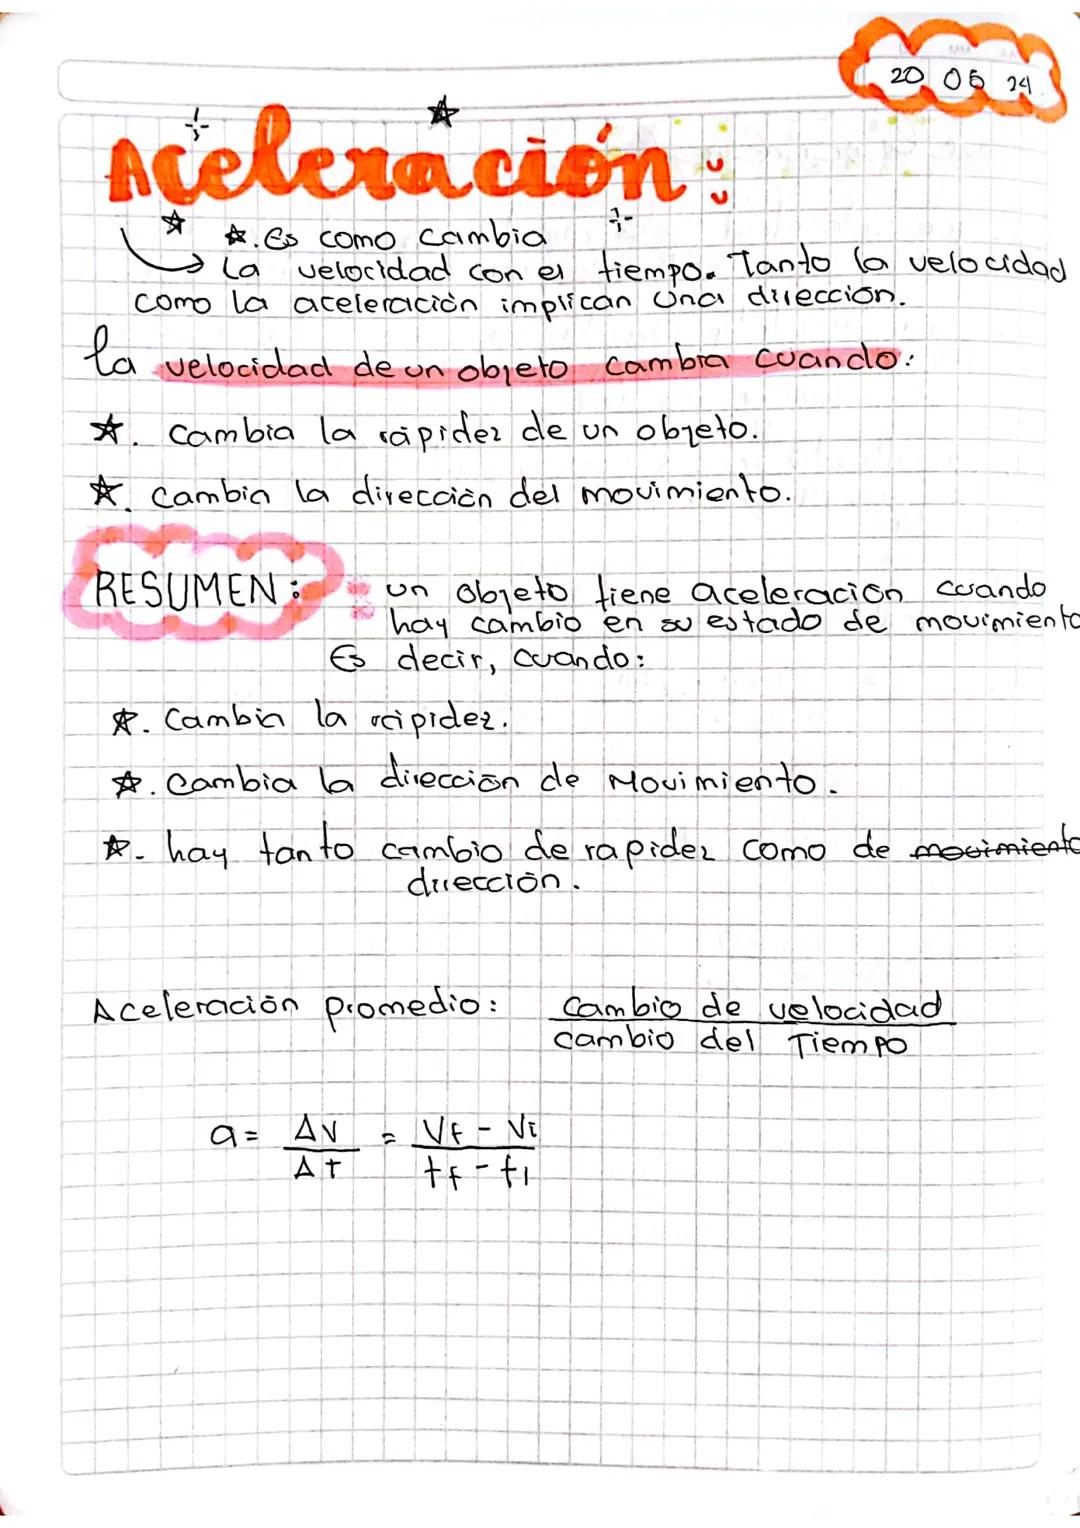 20 05 24
Aceleración:
☆. Es como cambia
la velocidad con el tiempo. Tanto la velocidad
como la aceleración implican una dirección.
la velocidad de un objeto cambia cuando:
☆. Cambia la rápidez de un objeto.
☆. Cambia la dirección del movimiento.
RESUMEN: un objeto tiene aceleración cuando
hay cambio en su estado de movimiento
Es decir, cuando:
☆. Cambia la rápidez.
☆. Cambia la dirección de Movimiento.
☆. hay tanto cambio de rapidez como de movimiento
dirección.
Aceleración promedio: cambio de velocidad
cambio del Tiempo
a = ΔV = Vf - Vi
Δt tf - ti